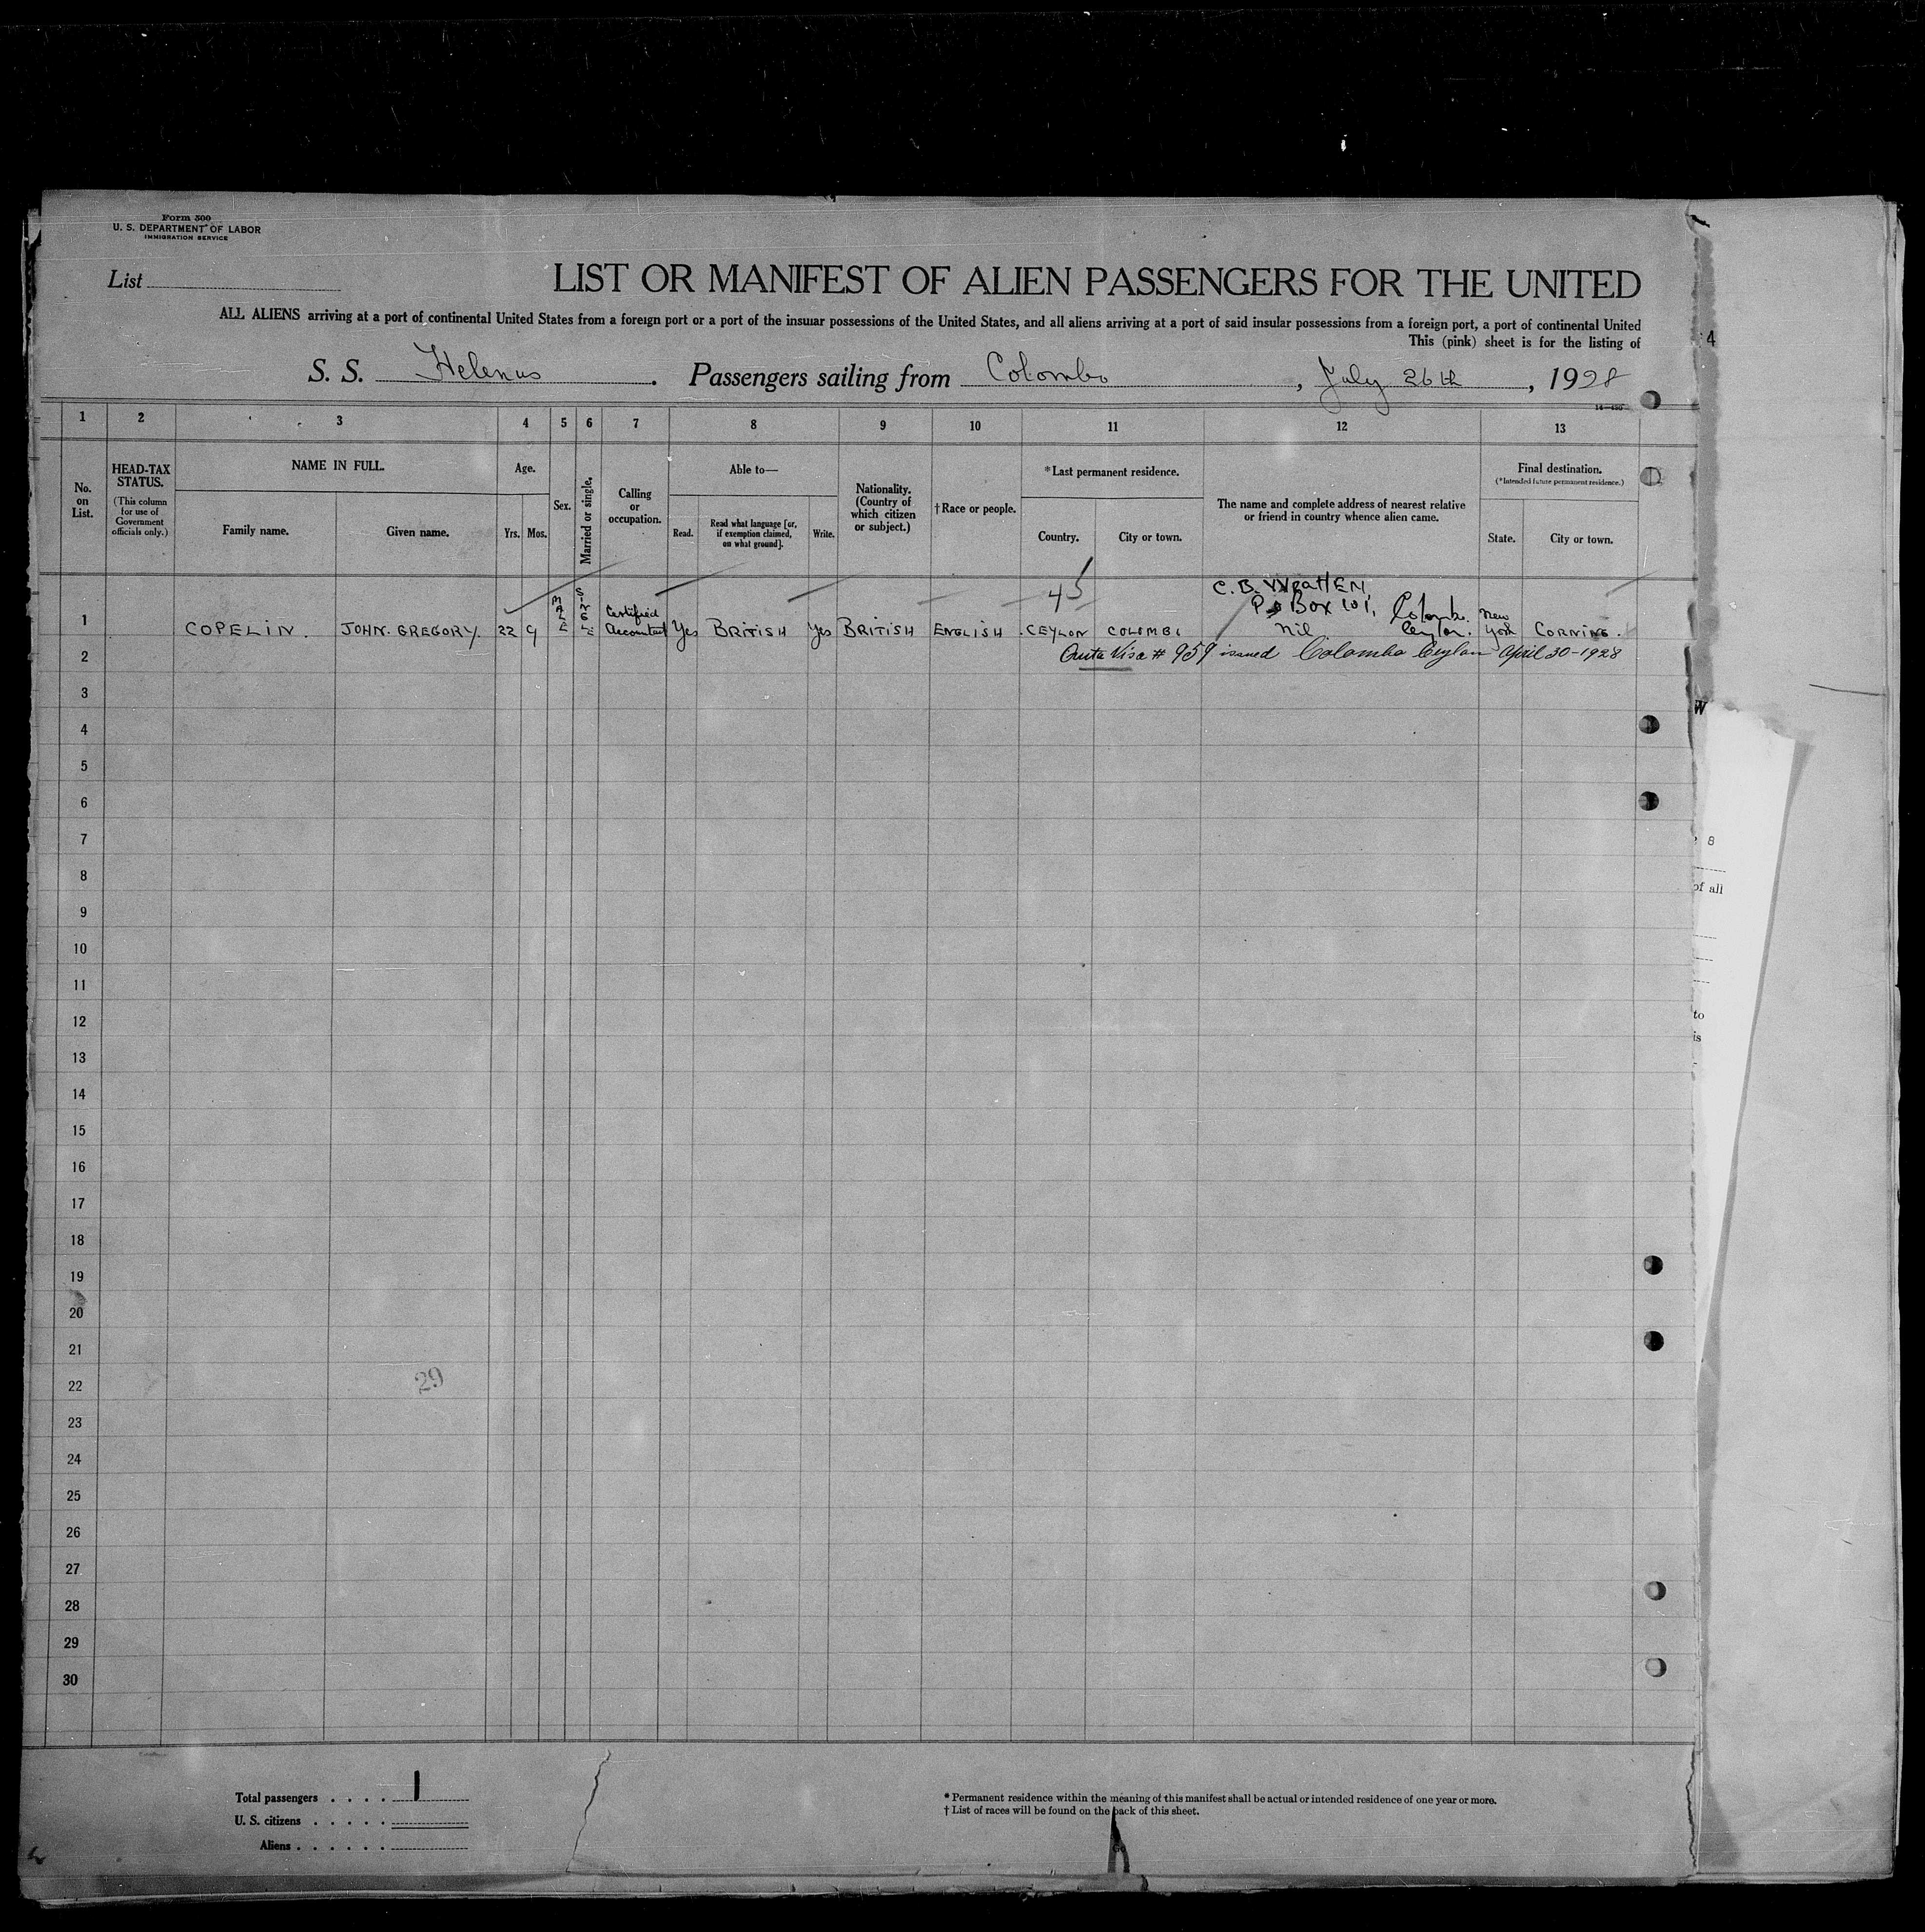 Form 500
U. S. DEPARTMENT OF LABOR
IMMIGRATION SERVICE
List
LIST OR MANIFEST OF ALIEN PASSENGERS FOR THE UNITED
ALL ALIENS arriving at a port of continental United States from a foreign port or a port of the insular possessions of the United States, and all aliens arriving at a port of said insular possessions from a foreign port, a port of continental United
This (pink) sheet is for the listing of
4
S. S. Helenus. Passengers sailing from Colombo, July 26th, 1928
1 2 3 4 5 6 7 8 9 10 11 12 13
No. on List.
HEAD-TAX STATUS.
(This column for use of Government officials only.)
NAME IN FULL.
Family name.
Given name.
Age.
Yrs. Mos.
Sex.
Married or single.
Calling or occupation.
Able to—
Read.
Read what language [or, if exemption claimed, on what ground].
Write.
Nationality. (Country of which citizen or subject.)
†Race or people.
*Last permanent residence.
Country.
City or town.
The name and complete address of nearest relative or friend in country whence alien came.
Final destination.
(*Intended future permanent residence.)
State.
City or town.
45
C. B. WRATTEN,
P.O Box 101, Colombo.
1 COPELIN. JOHN. GREGORY. 22 9 MALE SINGLE Certified Accountant Yes BRITISH Yes BRITISH ENGLISH CEYLON COLOMBO Nil Ceylon. New York CORNING.
2 Quota Visa # 959 issued Colombo Ceylon April 30-1928
3
4
W
5
6
7
8
8
of all
9
10
11
12
to
is
13
14
15
16
17
18
19
20
21
22
29
23
24
25
26
27
28
29
30
Total passengers . . . . 1
U. S. citizens . . . . .
Aliens . . . . . .
* Permanent residence within the meaning of this manifest shall be actual or intended residence of one year or more.
† List of races will be found on the back of this sheet.